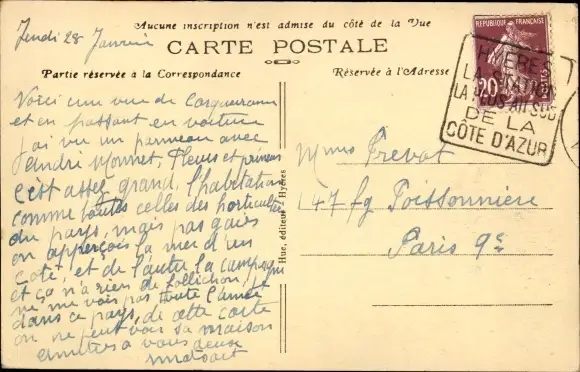 Aucune inscription n'est admise du côté de la Vue
CARTE POSTALE
Partie réservée à la Correspondance
Réservée à l'Adresse
Jeudi 28 Janvier
Voici une vue de Carqueiranne
et en passant en voiture
j'ai vu un panneau avec
André Monnet, Fleurs et primeurs
c'est assez grand, l'habitation
comme toutes celles des horticulteurs
du pays, mais pas gaies
on aperçois la mer d'un
coté, et de l'autre la campagne
et ça n'a rien de folichon, je
ne me vois pas toute l'année
dans ce pays, de cette carte
on ne peut voir sa maison
amitiés à vous deux
Hue, éditeur - Hyères
RÉPUBLIQUE FRANÇAISE
20
POSTES
HYERES
LA STATION
LA PLUS AU SUD
DE LA
COTE D'AZUR
Mme Prevot
47 fg Poissonnière
Paris 9e